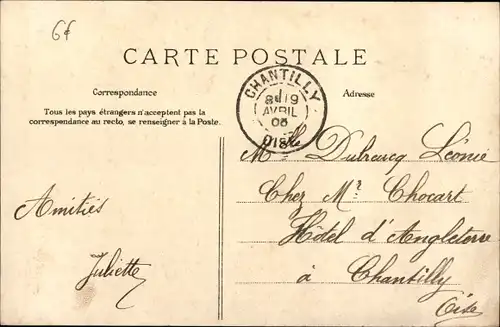 6f
CARTE POSTALE
Correspondance
Adresse
Tous les pays étrangers n'acceptent pas la
correspondance au recto, se renseigner à la Poste.
CHANTILLY
AVRIL
OISE
Melle Dubrucq Léonie
Chez Mr Chocart
Hôtel d'Angleterre
à Chantilly
Oise
Amitiés
Juliette